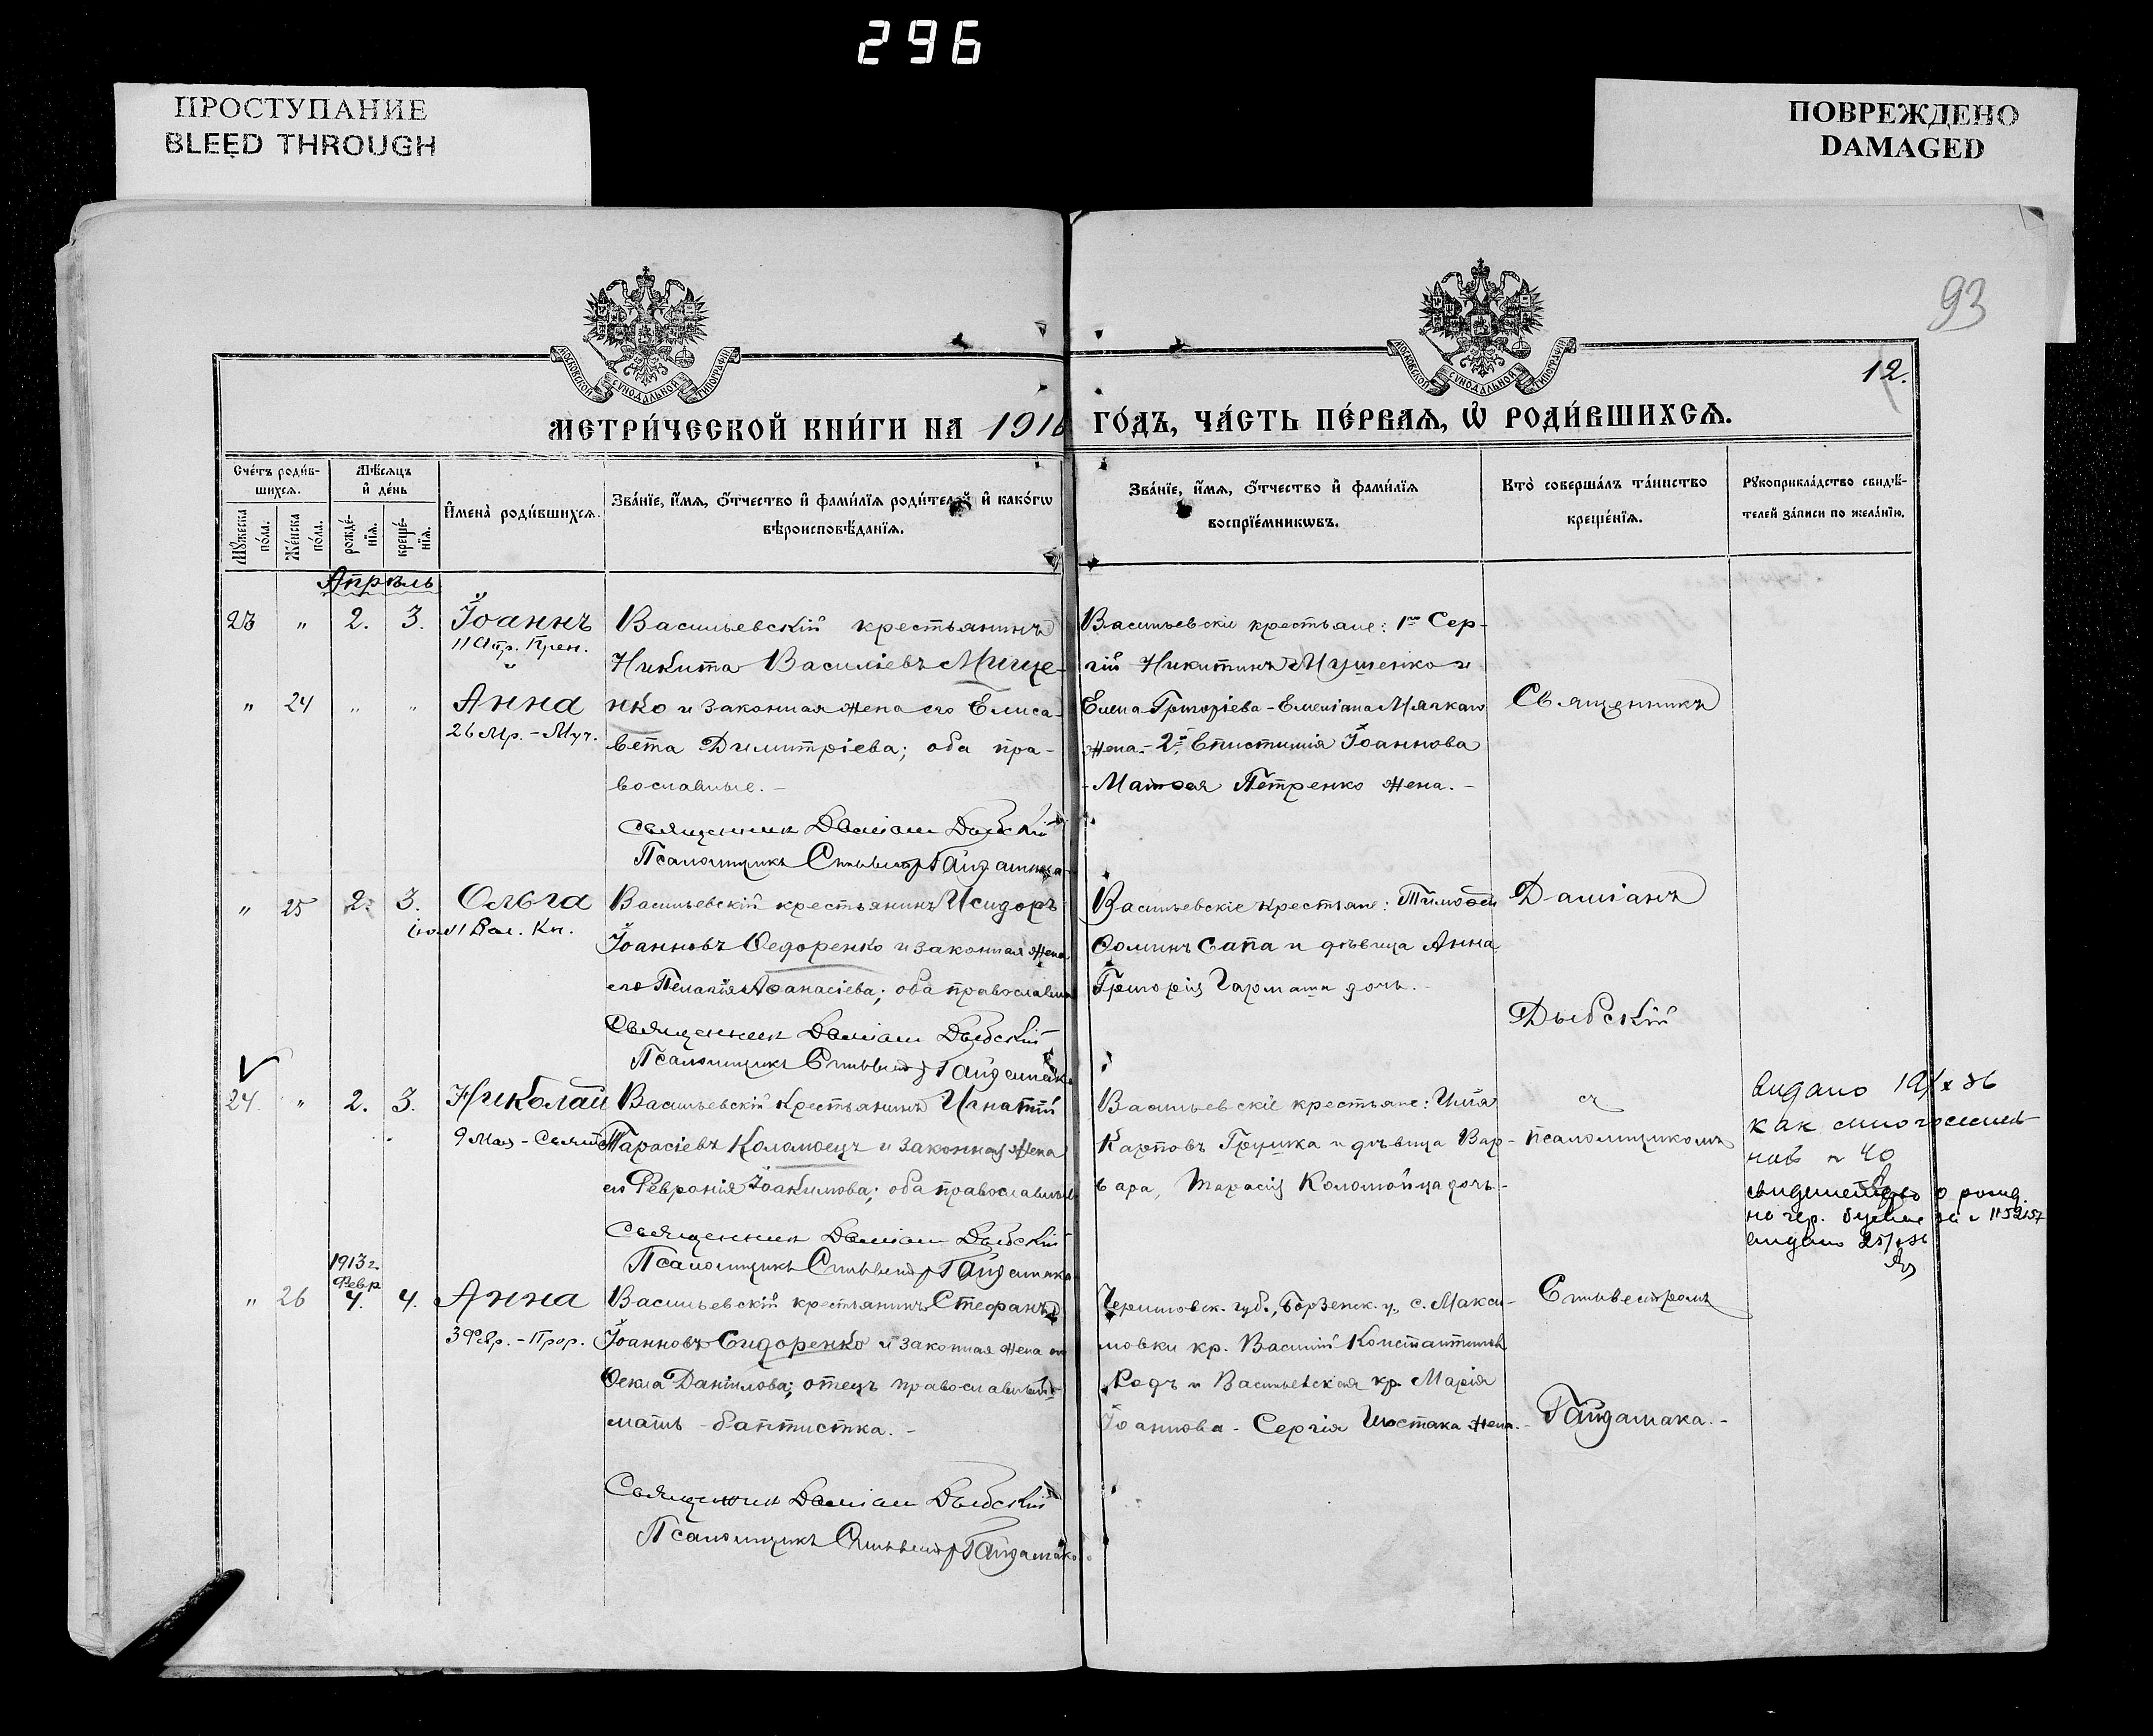 296
ПРОСТУПАНИЕ
BLEED THROUGH
ПОВРЕЖДЕНО
DAMAGED
93
12.
МОСКОВСКОЙ СУНОДАЛЬНОЙ ТИПОГРАФІИ
МОСКОВСКОЙ СУНОДАЛЬНОЙ ТИПОГРАФІИ
МЕТРИ́ЧЕСКОЙ КНИ́ГИ НА 1916 ГО́ДЪ, ЧА́СТЬ ПЕ́РВАЯ, Ѡ РОДИ́ВШИХСЯ.
Сче́тъ роди́в-
шихся.
Мѣ́сяцъ
и де́нь
Му́жеска по́ла.
Же́нска по́ла.
рожде́-
нїя.
креще́-
нїя.
И́мена роди́вшихся.
Зва́нїе, и́мя, о́тчество и фами́лїя роди́телей и како́гѡ
вѣроисповѣ́данїя.
Зва́нїе, и́мя, о́тчество и фами́лїя
воспрїе́мникѡвъ.
Кто̀ соверша́лъ та́инство
креще́нїя.
Рукоприкла́дство свидѣ́-
телей за́писи по жела́нїю.
Апрѣль
23 " 2. 3. Іоаннъ
11 Апр. Преп.
" 24 " " Анна
26 Мр. - Муч.
Васильевскій крестьянинъ
Никита Василіевъ Мище-
нко и законная жена его Елиса-
вета Димитріева; оба пра-
вославные. -
Священник Даміан Дыбскій
Псаломщикъ Сильвестр Гайдамака
Васильевскіе крестьяне: 1го Сер-
гій Никитинъ Мищенко и
Елена Григоріева - Емеліана Мягкаго
жена. - 2й Епистимія Іоаннова
- Матѳея Петренко жена. -
Священникъ
" 25 2. 3. Ольга
11 Рав. Кн.
Васильевскій крестьянинъ Исидоръ
Іоанновъ Ѳедоренко и законная жена
его Пелагія Аѳанасіева; оба православные
Священник Даміан Дыбскій
Псаломщикъ Сильвестр Гайдамака
Васильевскіе крестьяне: Тимоѳей
Ѳоминъ Сапа и дѣвица Анна
Григорія Гармаша дочь. -
Даміанъ
Дыбскій
24. " 2. 3. Николай
9 Мая - Свят.
Васильевскій крестьянинъ Игнатій
Тарасіевъ Коломоецъ и законная жена
его Февронія Іоакимова; оба православные
Священник Даміан Дыбскій
Псаломщикъ Сильвестр Гайдамака
Васильевскіе крестьяне: Илія
Карповъ Грушка и дѣвица Вар-
вара, Тарасія Коломойца дочь -
съ
псаломщикомъ
видано 19/X 36
как
40
о рожд.
видано 25/X 36
1913 г.
Февр
" 26 4. 4. Анна
3 Февр. - Прор.
Васильевскій крестьянинъ Стефанъ
Іоанновъ Сидоренко и законная жена его
Ѳекла Даніилова; отецъ православный
мать - баптистка. -
Священник Даміан Дыбскій
Псаломщикъ Сильвестр Гайдамака
Черниговск. губ., Борзенск. у., с. Макси-
мовки кр. Василій Константиновъ
и Васильевская кр. Марія
Іоаннова - Сергія Шостака жена. -
Сильвестромъ
Гайдамака. -